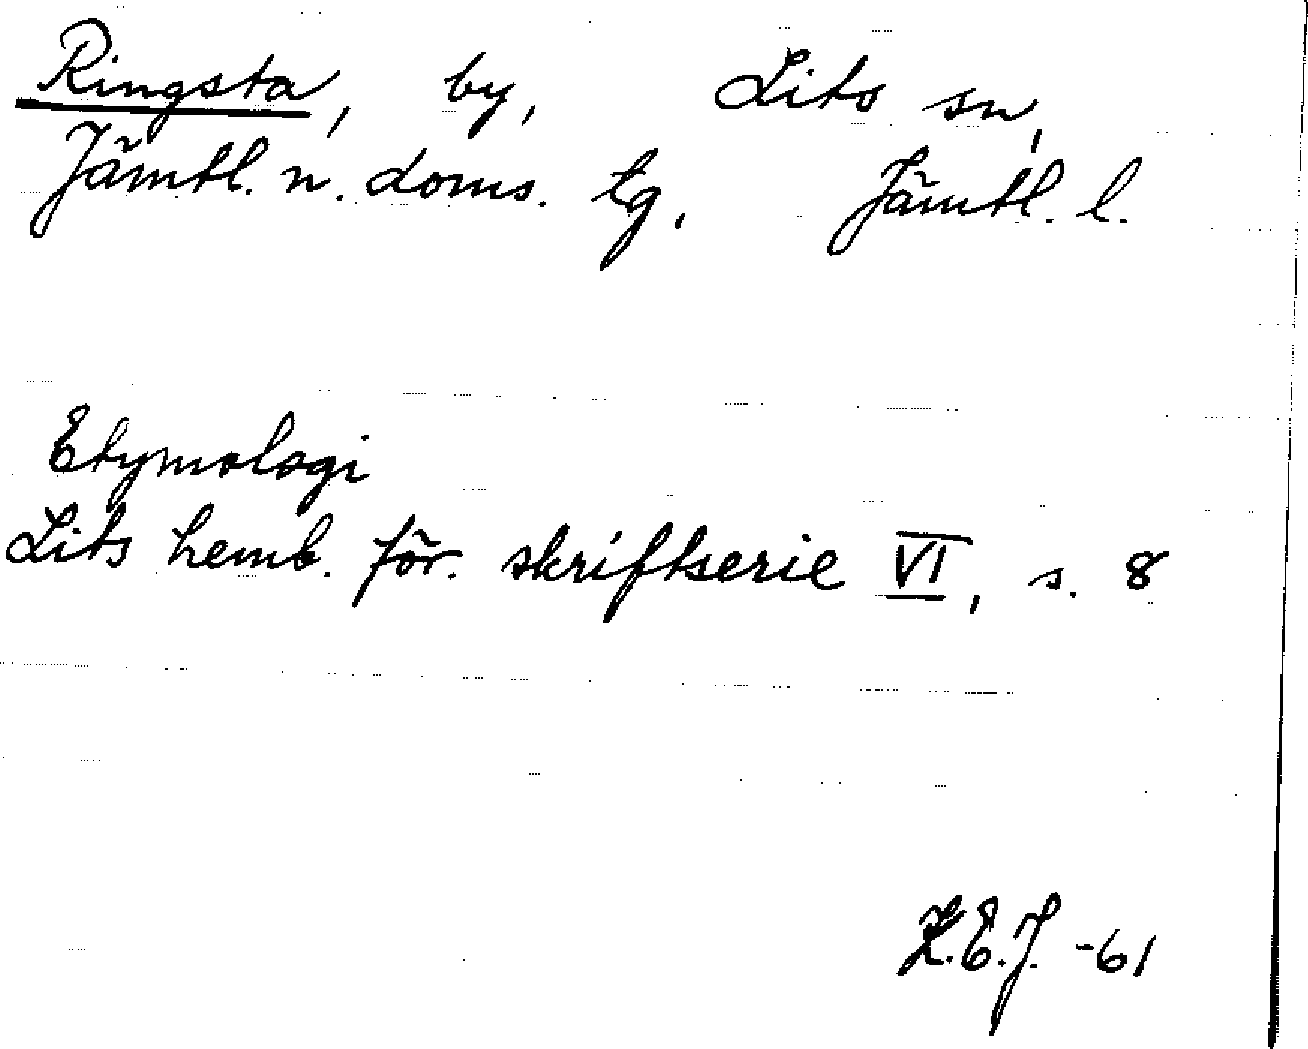 Ringsta, by, Lits sn,
Jämtl. n. doms. tg, Jämtl. l.
Etymologi
Lits hemb. för. skriftserie VI, s. 8
Z.E.J. -61